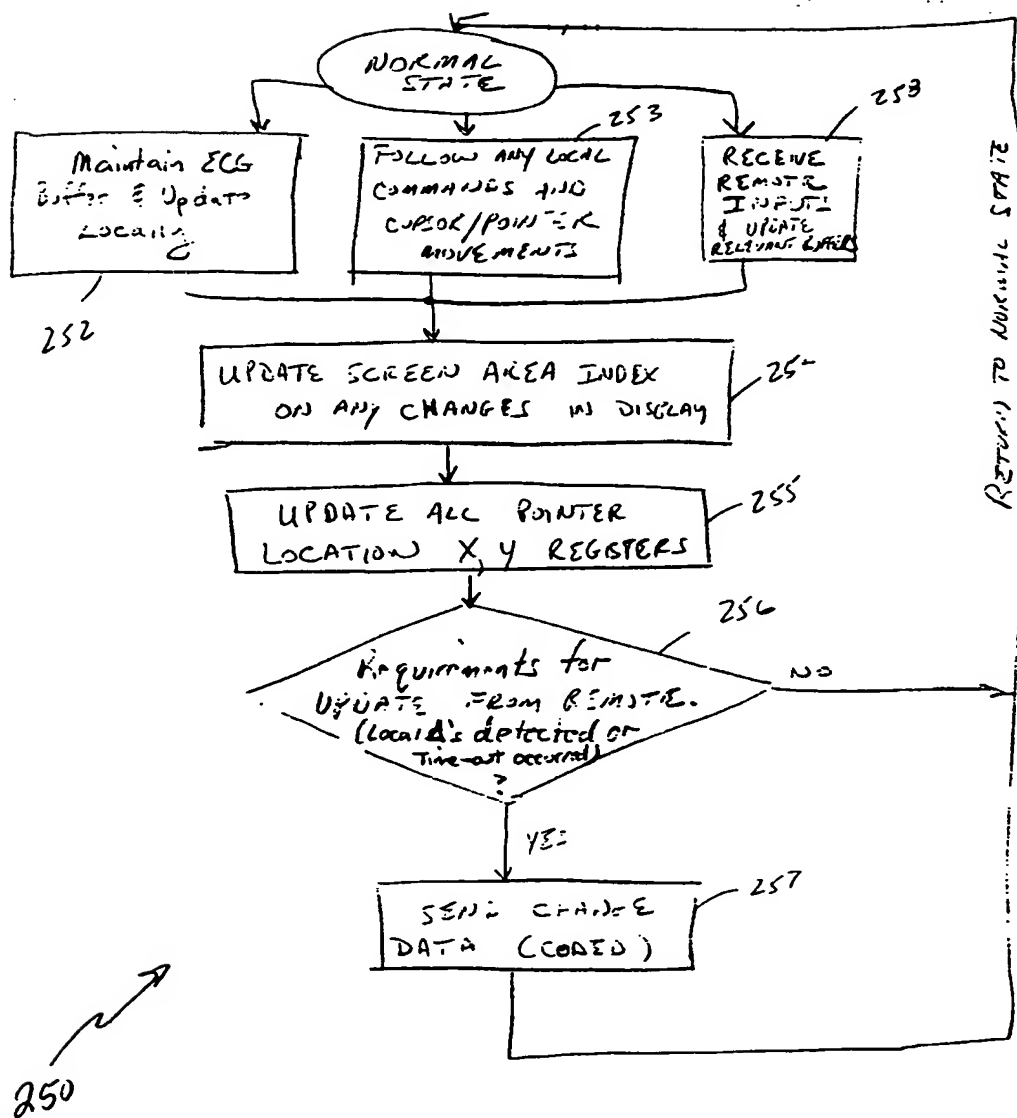 NORMAL
STATE
253
258
Maintain ECG
Buffer & Update
Locally
FOLLOW ANY LOCAL
COMMANDS AND
CURSOR/POINTER
MOVEMENTS
RECEIVE
REMOTE
INPUTS
& UPDATE
RELEVANT BUFFERS
252
UPDATE SCREEN AREA INDEX
ON ANY CHANGES IN DISPLAY
25
UPDATE ALL POINTER
LOCATION X, Y REGISTERS
255
RETURN TO NORMAL STATE
256
Requirements for
UPDATE FROM REMOTE.
(Local Δ's detected or
Time-out occurred)
?
NO
YES
SEND CHANGE
DATA (CODED)
257
250